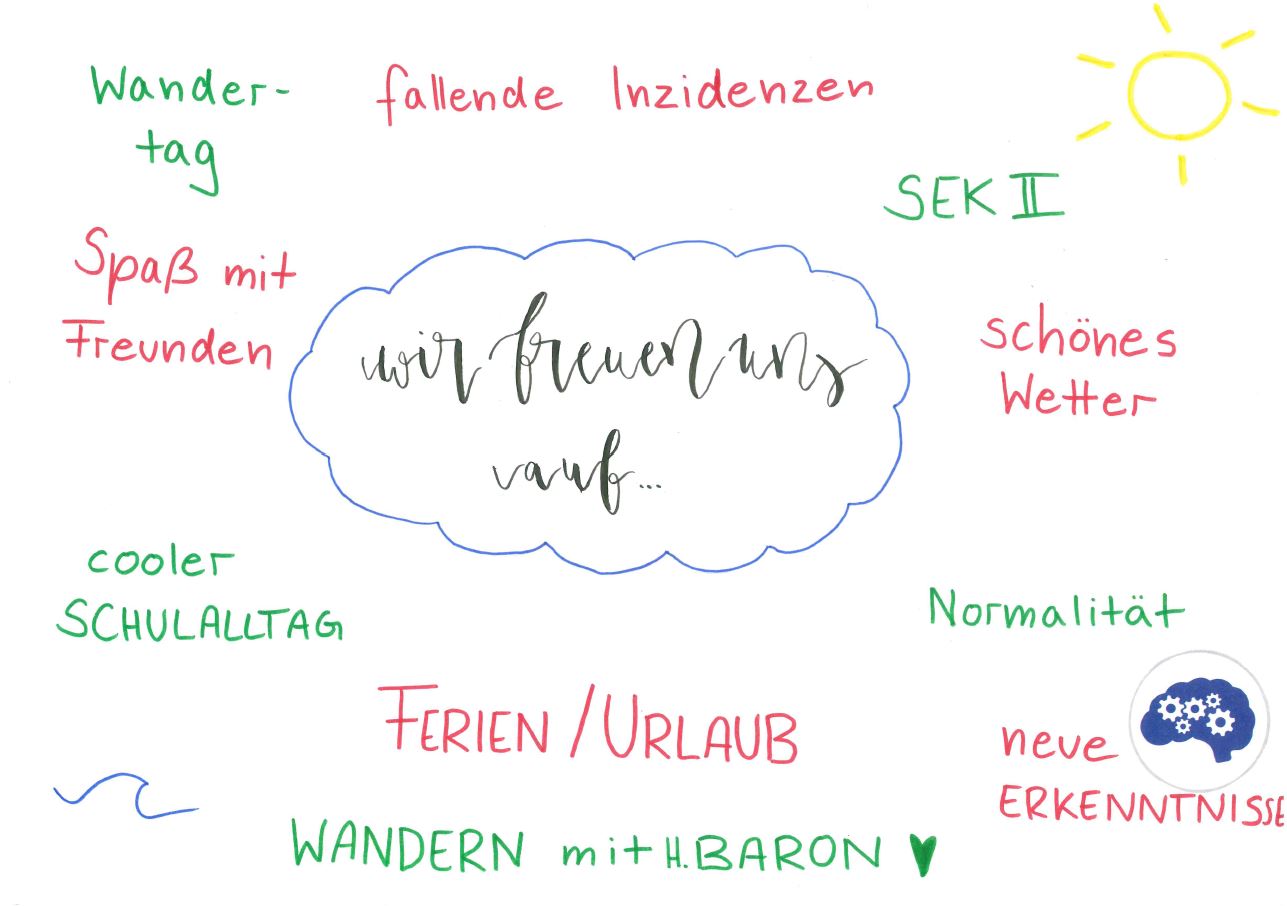 Wander-
tag
fallende Inzidenzen
SEK II
Spaß mit
Freunden
wir freuen uns
auf...
schönes
Wetter
cooler
SCHULALLTAG
Normalität
FERIEN / URLAUB
neue
ERKENNTNISSE
WANDERN mit H. BARON